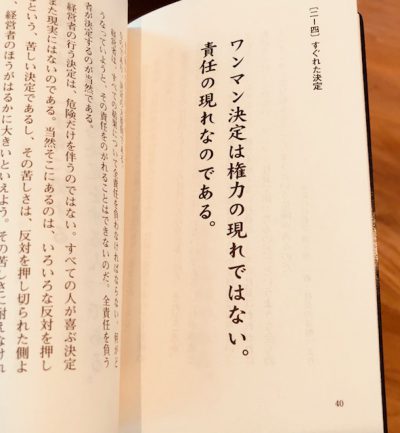 [二ー四] すぐれた決定
ワンマン決定は権力の現れではない。
責任の現れなのである。
40
経営者は、すべての結果について全責任を負わなければならない。何がど
うなっていようと、その責任をのがれることはできないのだ。全責任を負う
者が決定するのが当然である。
経営者の行う決定は、危険だけを伴うのではない。すべての人が喜ぶ決定
また現実にはないのである。当然そこにあるのは、いろいろな反対を押し
という、苦しい決定であるし、その苦しさは、反対を押し切られた側よ
、経営者のほうがはるかに大きいといえよう。その苦しさに耐えなけれ